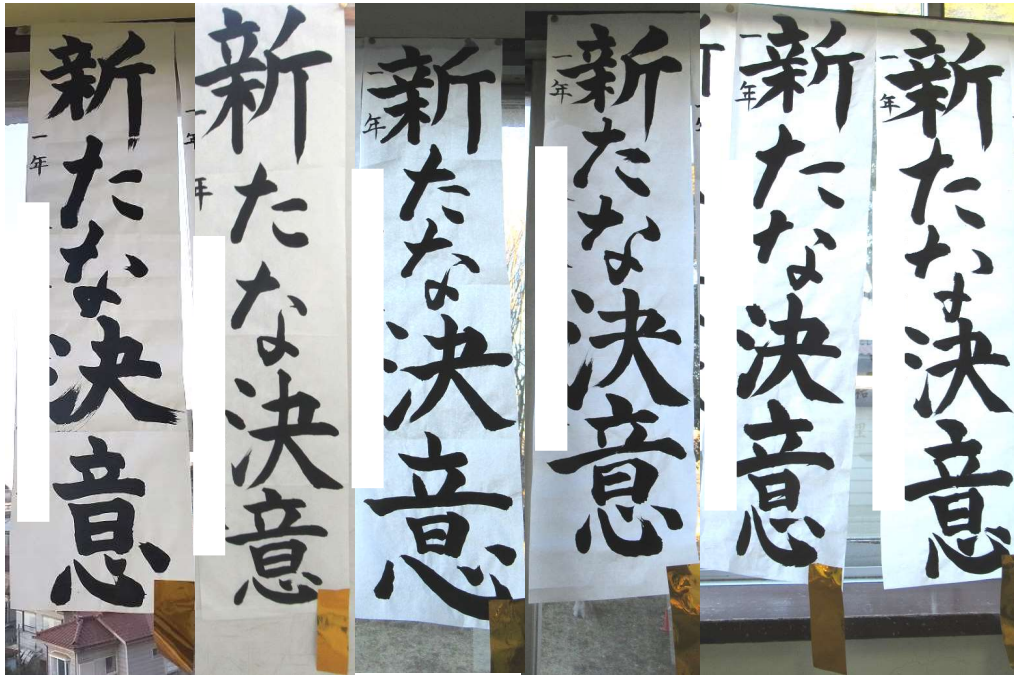 新たな決意
一年
新たな決意
一年
新たな決意
一年
新たな決意
一年
新たな決意
一年
新たな決意
一年